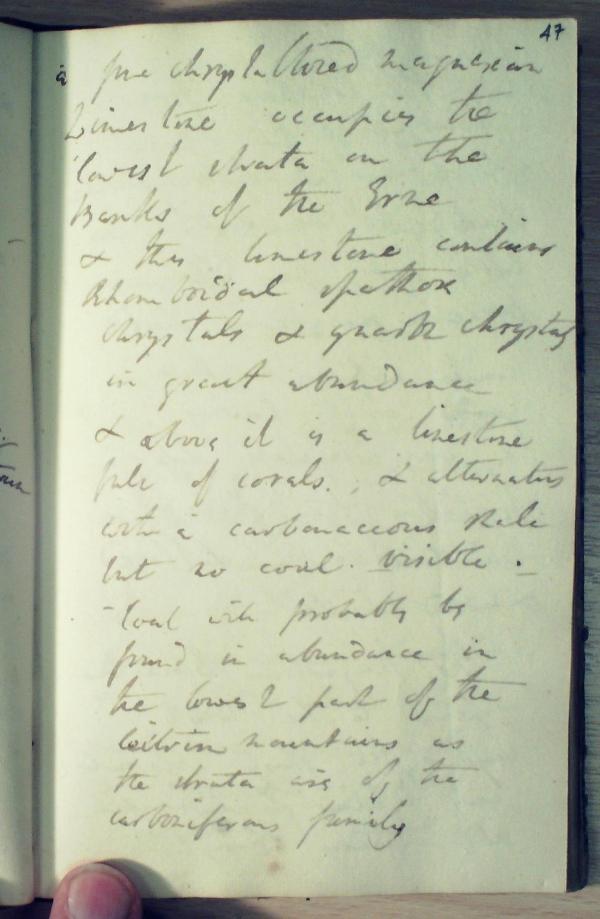 47
a fine chrystallized magnesian
Limestone occupies the
lowest strata on the
Banks of the Erne
& this limestone contains
Rhomboidal spathose
chrystals & quartz chrystals
in great abundance
& above it is a limestone
full of corals. & alternates
with a carbonaceous Shale
but no coal. visible.
Coal will probably be
found in abundance in
the lowest part of the
Leitrim mountains as
the strata are of the
carboniferous family